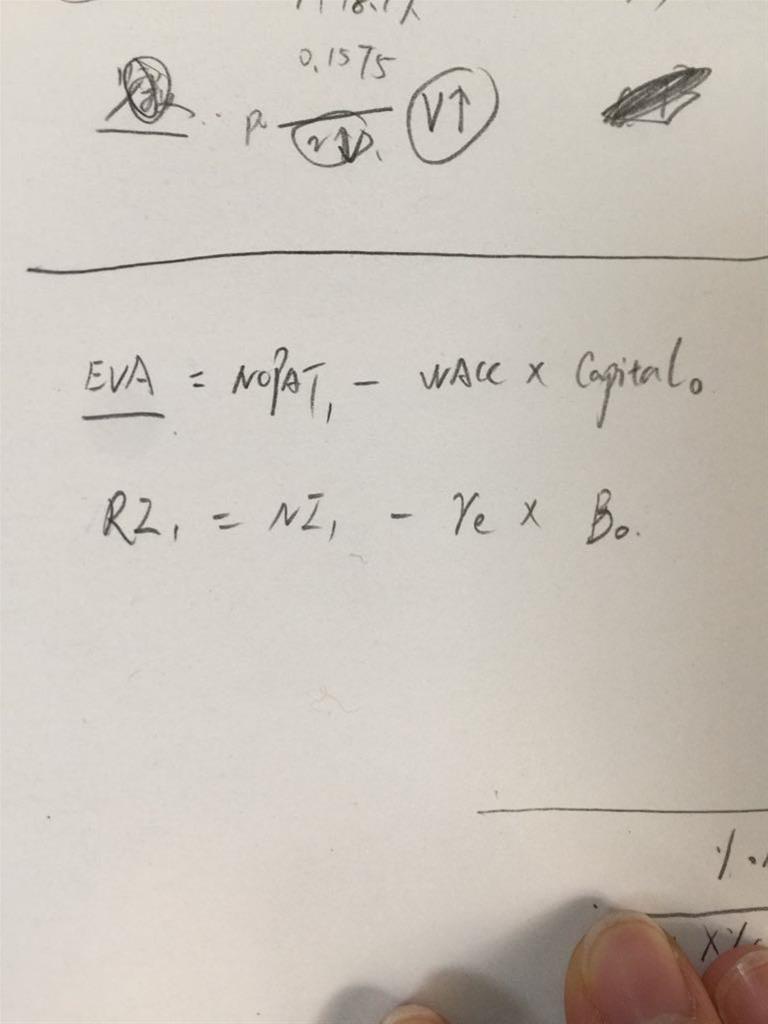 0.1575
V↑
EVA = NOPAT₁ - WACC × Capital₀
RI₁ = NI₁ - re × B₀.